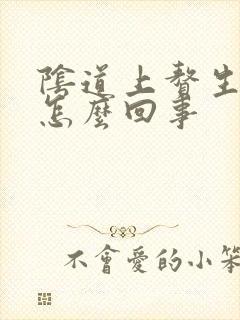 陰道上贅生
怎麼回事
不會愛的小笨